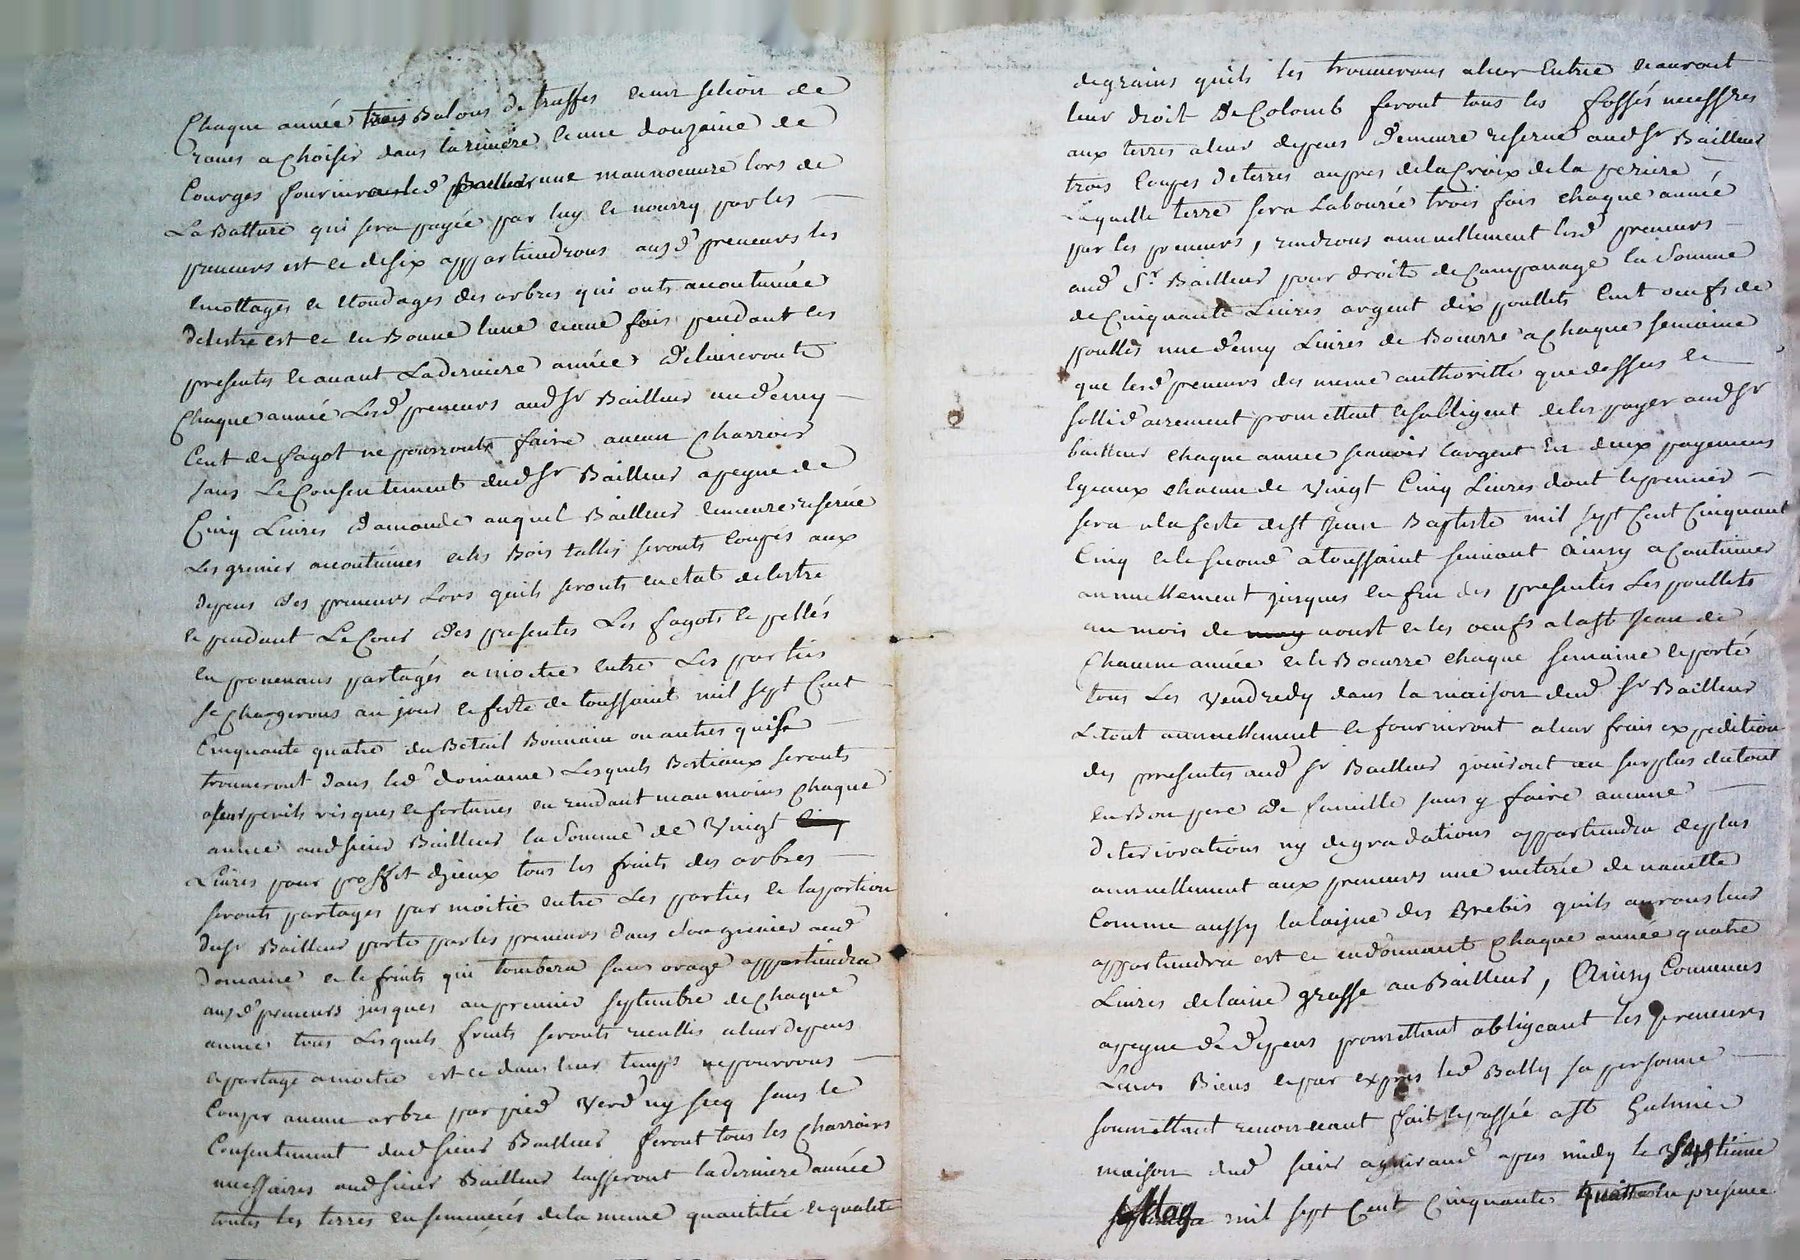 Chaque année trois Balons de truffes et un setioir de
raves a choisir dans la riviere et une douzaine de
Courges fourniront led. Bailleur une manoeuvre lors de
La Batture qui sera payée par luy et nourry par les
preneurs est ce desix appartiendrons ausd preneurs les
emottages et etoudages des arbres qui onts acoutumée
delestre est ce en Bonne lune et une fois pendant les
presentes et avant La derniere année delivreronts
Chaque année Lesd preneurs aud Sr Bailleur un demy
Cent de fagot ne pourronts faire aucun Charrois
sans Le Consentement dud Sr Bailleur a peyne de
Cinq Livres damande auquel Bailleur demeure reservé
Les grenier acoutumés et les Bois tallis seronts Coupés aux
depens des preneurs Lors quils seronts en etat delestre
et pendant Le Cour des presentes Les fagots et pellés
en provenans partagés a moitie entre Les parties
se Chargerons au jour et feste de toussaint mil sept Cent
Cinquante quatre du Betail Bouvain ou autres qui se
trouveront dans led domaine Lesquels Bestiaux seronts
a leur perils risques et fortunes en rendant neanmoins chaque
année aud sieur Bailleur la Somme de Vingt
Livres pour proffit diceux tous les fruits des arbres
seronts partages par moitie entre Les parties et la portion
dud Sr Bailleur porté par les preneurs dans Son grenier aud
Domaine et le fruits qui tombera sans orage appartiendra
ausd preneurs jusques au premier septembre de chaque
année tous Lesquels fruits seronts recuillis a leur depens
et partagé a moitie est ce dans leur temps ne pourrons
Couper aucun arbre par pied Verd ny secq sans le
Consentement dud sieur Bailleur feront tous les Charroirs
necessaires aud sieur Bailleur laisseront la derniere année
toutes les terres ensemencés de la meme quantitée et qualité
de grains quils les trouverons a leur Entrée et auront
leur droit de Colomb feront tous les fossés necessres
aux terres a leur depens demeure reservé aud Sr Bailleur
trois Coupes de terres aupres de la Croix de la periere
laquelle terre sera Labourée trois fois chaque année
par les preneurs, rendrons annuellement lesd preneurs
aud Sr Bailleur pour droit de Campanage la Somme
de Cinquante Livres argent dix poullets Cent oeufs de
poulles une demy Livres de Beurre a Chaque semaine
que lesd preneurs des meme authorité que dessus et
sollidairement promettent et sobligent de les payer aud Sr
bailleur chaque annee scavoir largent En deux payemens
Egeaux chacun de Vingt Cinq Livres dont le premier
sera a la feste de St Jean Baptiste mil sept Cent Cinquant
Cinq et le second a toussaint suivant Ainsy a Continuer
annuellement jusques en fin des presentes Les poullets
au mois de aoust et les oeufs a la St Jean de
Chacune année et le Beurre chaque semaine et porté
tous Les Vendredy dans la maison dud Sr Bailleur
Le tout annuellement et fourniront a leur frais expedition
des presentes aud Sr Bailleur jouiront au surplus du tout
en Bon pere de famille sans y faire aucune
deteriorations ny degradations appartiendra de plus
annuellement aux preneurs une meterée de navette
Comme aussy la laisne des Brebis quils aurons leur
appartiendra est ce en donnant chaque annee quatre
Livres de laine grasse au Bailleur, Ainsy Convenus
a peyne de depens promettant obligeant les preneurs
Leurs Biens et par expres led Bally sa personne
soumettant renonceant fait et passée a St Galmier
maison dud sieur aguiraud apres midy le septieme
May mil sept Cent Cinquante quatre en presence